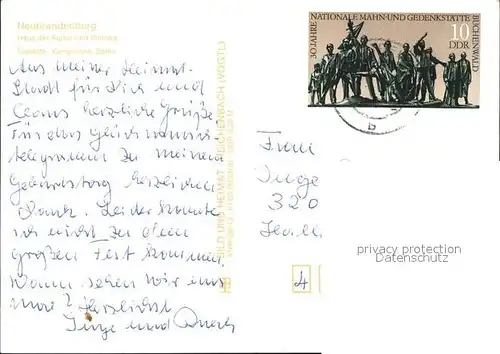 Neubrandenburg
Haus der Kultur und Bildung
30 JAHRE NATIONALE MAHN-UND GEDENKSTÄTTE BUCHENWALD
10
DDR
Aus meiner Heimat-
stadt für Dich und
herzliche Grüße.
Für das Glückwunsch-
telegramm zu meinem
Geburtstag herzlichen
Dank. Leider konnte
ich nicht zu dem
großen Fest kommen.
Wann sehen wir uns
mal? Herzlichst
Inge und
BILD UND HEIMAT REICHENBACH (VOGTL)
Frau
Inge
320
Hall
privacy protection
Datenschutz
4